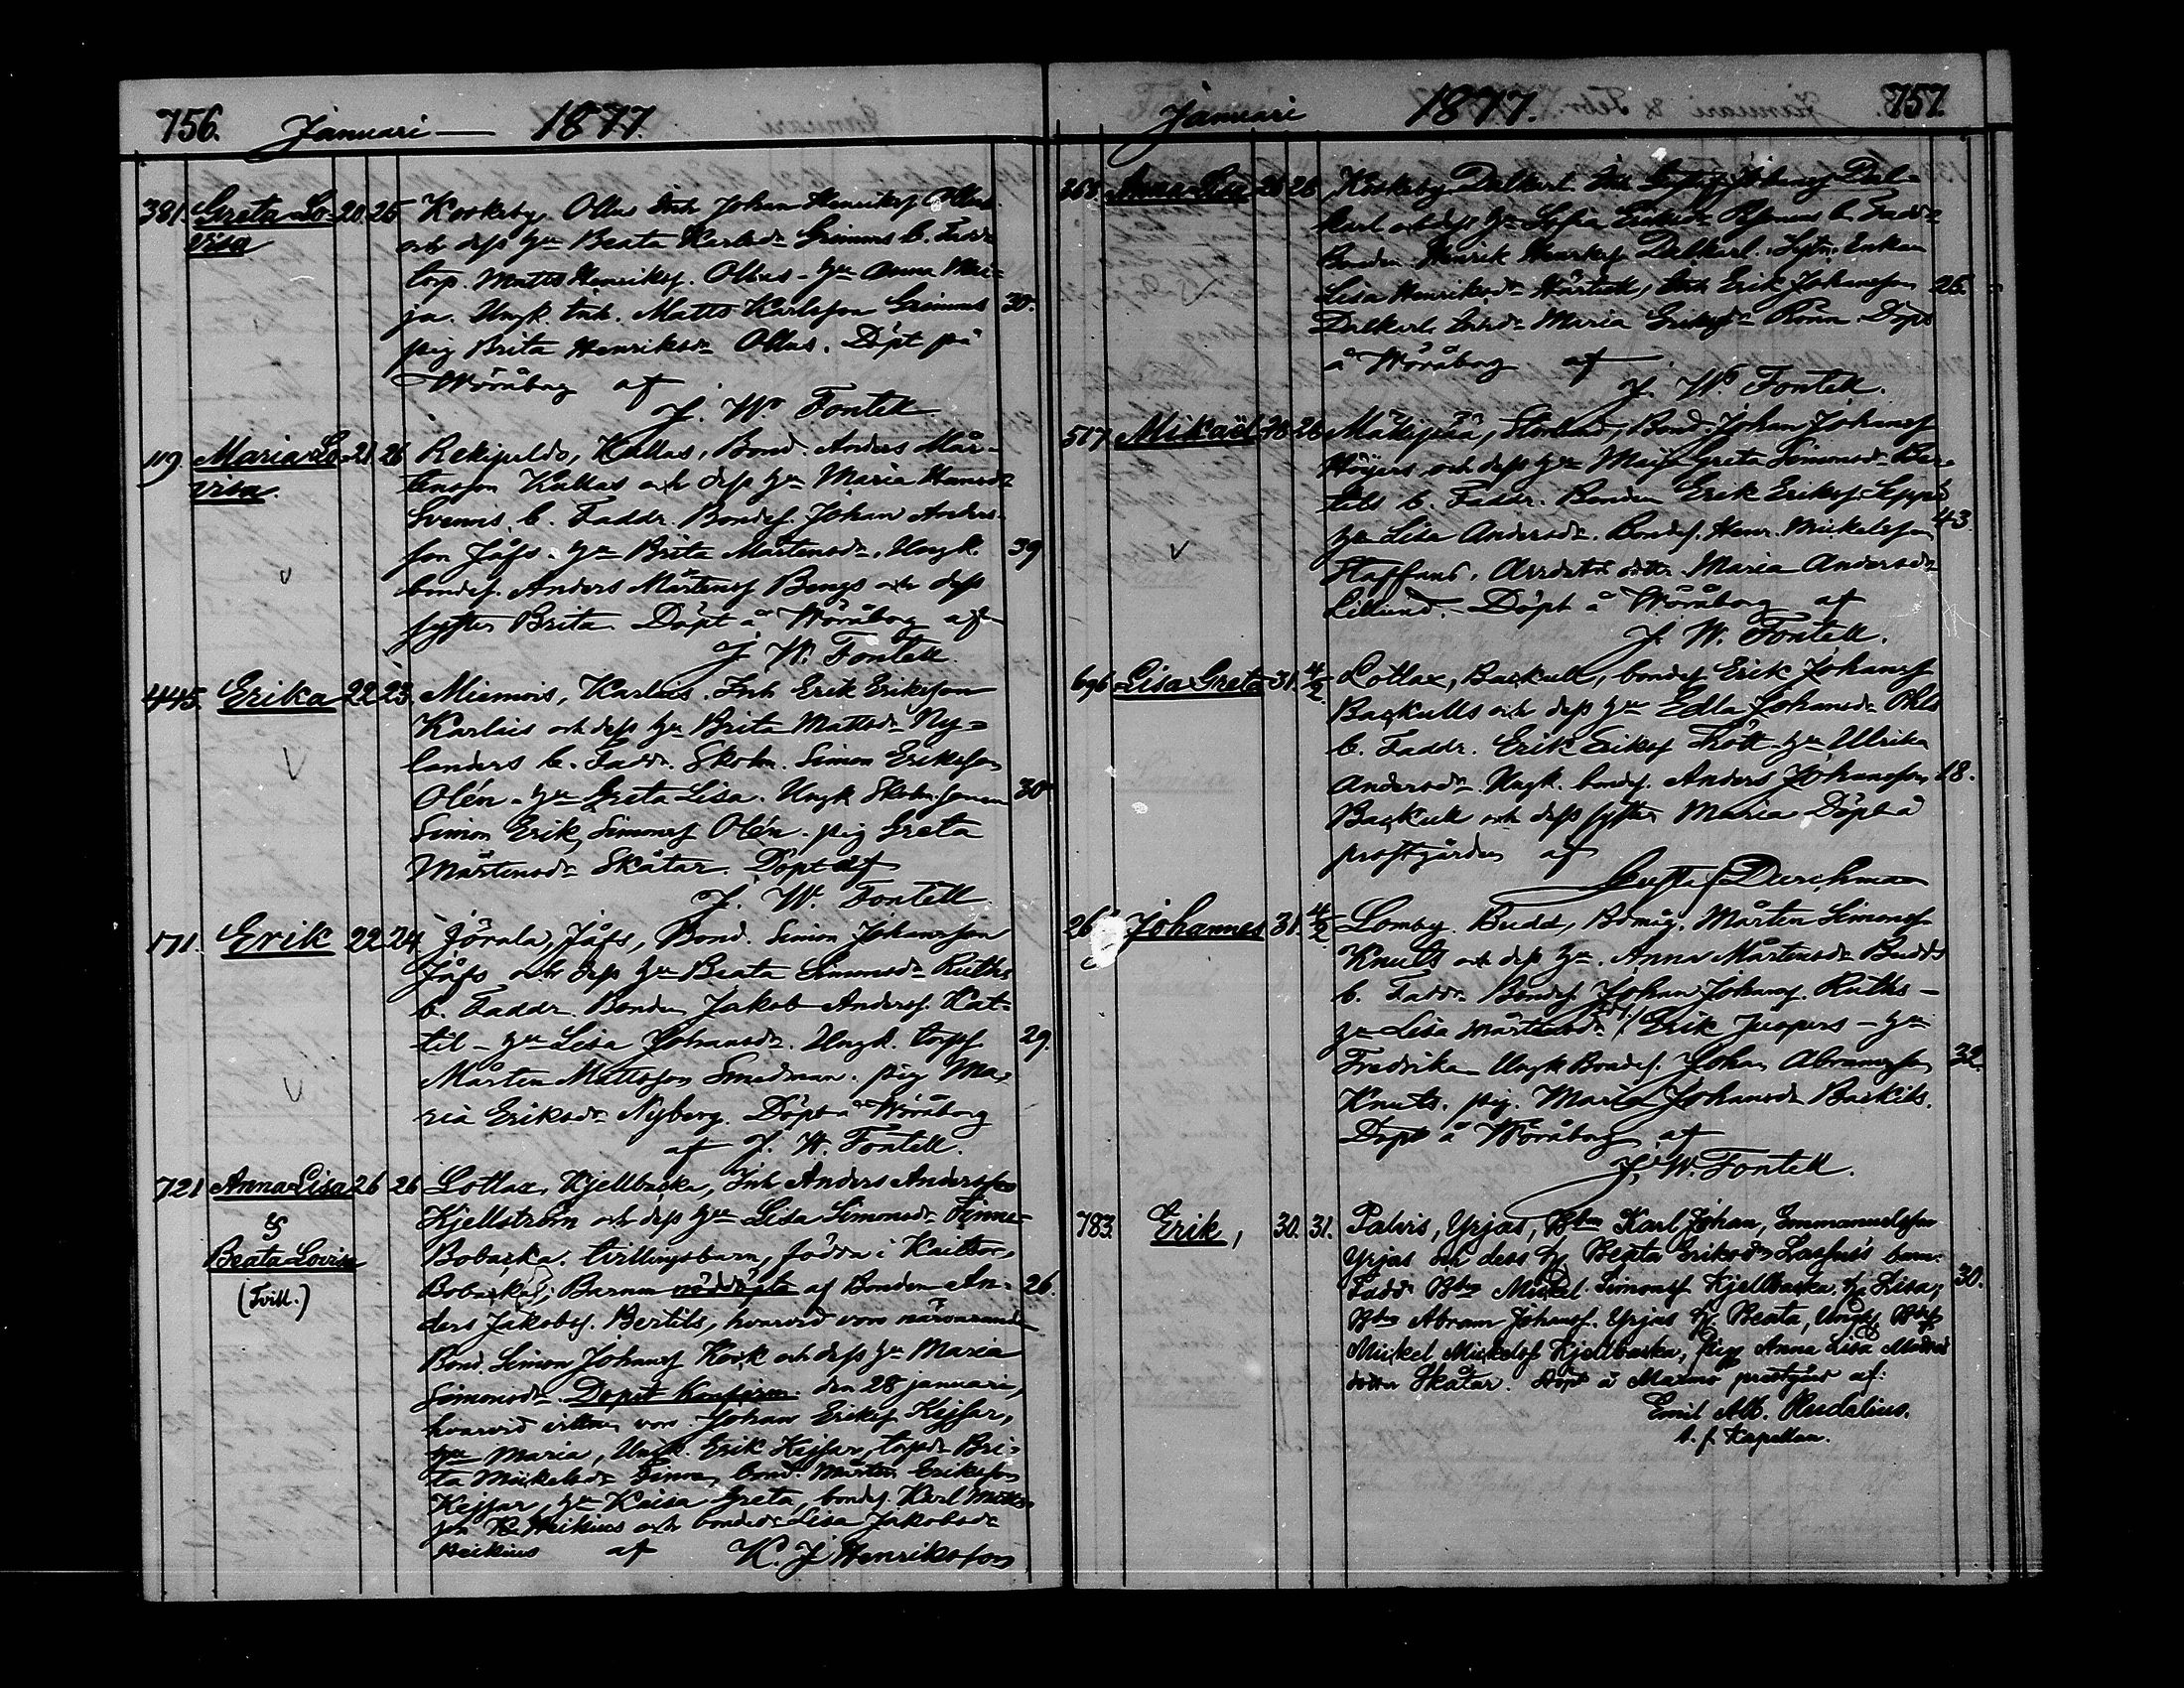 756. Januari 1877.
381. Greta Lo- 20. 25 Koskeby Ollus Inh Johan Henriksf Ollus
visa och dess hu Beata Karlsdr Grimus b. Faddr
torp. Matts Henriksf. Ollus - hu Anna Mai-
ja. Ungk. Inh. Matts Karlsson Grimus 30.
pig Brita Henriksdr Ollus. Döpt på
Wöråborg af
J. W. Fontell
119. Maria Lo- 21 26 Rekipeldo, Kallas, Bond. Anders Mår-
visa. tensson Kallas och dess hu Maria Hansdr
Svenns b. Faddr. Bondes. Johan Anders-
son Jåfs - hu Brita Mårtensdr. Ungk. 39
bondes. Anders Mårtensf Bengs och dess
syster Brita. Döpt å Wöråborg af
J. W. Fontell.
445. Erika 22 23. Miemois, Karlais. Inh Erik Eriksson
Karlais och dess hu Brita Mattsdr Ny-
landers b. Faddr. Skolm. Simon Eriksson
Olén - hu Greta Lisa. Ungk Skolm. sonen 30
Simon Erik Simonsf Olén. pig Greta
Mårtensdr Skåtar. Döpt af
J. W. Fontell.
171. Erik 22 24 Jörala, Jåfs, Bond. Simon Johansson
Jåfs och dess hu Beata Simonsdr Ruths
b. Faddr. Bonden Jakob Andersf. Kat-
til - hu Lisa Johansdr. Ungk. torps 29.
Mårten Mattsson Smedman. pig Ma-
ria Eriksdr Nyberg. Döpt å Wöråborg
af J. W. Fontell.
721 Anna Lisa 26 26 Lotlax, Kjellbacka, Inh Anders Andersson
& Kjellström och dess hu Lisa Simonsdr Finne-
Beata Lovisa Bobacka. tvillingsbarn, födda i
(Tvill.) Bobacka; Barnen nöddöpta af Bonden An- 26.
ders Jakobsf. Bertils, hvarvid voro närvarande
Bond. Simon Johansf Kock och dess hu Maria
Simonsdr. Dopet Konfirm. den 28 januari,
hvarvid vittnen voro Johan Eriksf Kejsar,
hu Maria, Ungk. Erik Kejsar, torpdr Bri-
ta Mickelsdr Finne, bond. Mårten Eriksson
Kejsar, hu Kaisa Greta, bondes. Karl Matts-
son Heikius och bondedr Lisa Jakobsdr
Heikius af K. J Henriksson
Januari 1877. 757.
368. Anna Lisa 26 Koskeby Dalkarl Inh Johansf Dal-
karl och dess hu Sofia Eriksdr b. Faddr
Bonden Henrik Henriksf Dalkarl. Sytn. Enkan
Lisa Henriksdr Härtull, Inh Erik Johansson 25.
Dalkarl. Inhdr Maria Eriksdr Rönn. Döpt
å Wöråborg af
J. W. Fontell.
517 Mikael 26 Mäkipää, Storlund, Bond. Johan Johansf
Höijers och dess hu Maja Greta Simonsdr Ber-
tils b. Faddr. Bonden Erik Eriksf Seppä
hu Lisa Andersdr. Bondes. Henr. Mickelsson 43.
Staffans, Arrdats dottr. Maria Andersdr
Lillund. Döpt å Wöråborg af
J. W. Fontell.
696 Lisa Greta 31. 4/2 Lotlax, Backull, bondes Erik Johansf
Backulls och dess hu Edla Johansdr Ohls
b. Faddr. Erik Eriksf Trött - hu Ulrika
Andersdr. Ungk. bondes. Anders Johansson 18.
Backull och dess syster Maria Döpt å
prostgården af
Gustaf Durchman
26 Johannes 31. 4/2 Lomby. Budd, Bdmåg. Mårten Simonsf
Knuts och dess hu. Anna Mårtensdr Budd
b. Faddr. Bondes. Johan Johansf. Ruths -
hu Lisa Mårtensdr. Erik Juspers - hu
Fredrika Ungk Bondes. Johan Abramsson 32.
Knuts. pig. Maria Johansdr Backits.
Döpt å Wöråborg af
J. W. Fontell.
783. Erik, 30. 31. Palvis, Yrjas, Bdn Karl Johan, Emmanuelsson
Yrjas och dess h. Beata Eriksdr Lassus's barn.
Faddr Bdn Mickel Simonsf Kjellbacka, h. Lisa; 30.
Bdn Abram Johansf. Yrjas h. Beata, Ungk. Bds
Mickel Mickelsf Kjellbacka, Pig. Anna Lisa
dotter Skåtar. Döpt å Maxmo prestgård af:
Emil Alb. Rudelius.
t. f. Kapellan.